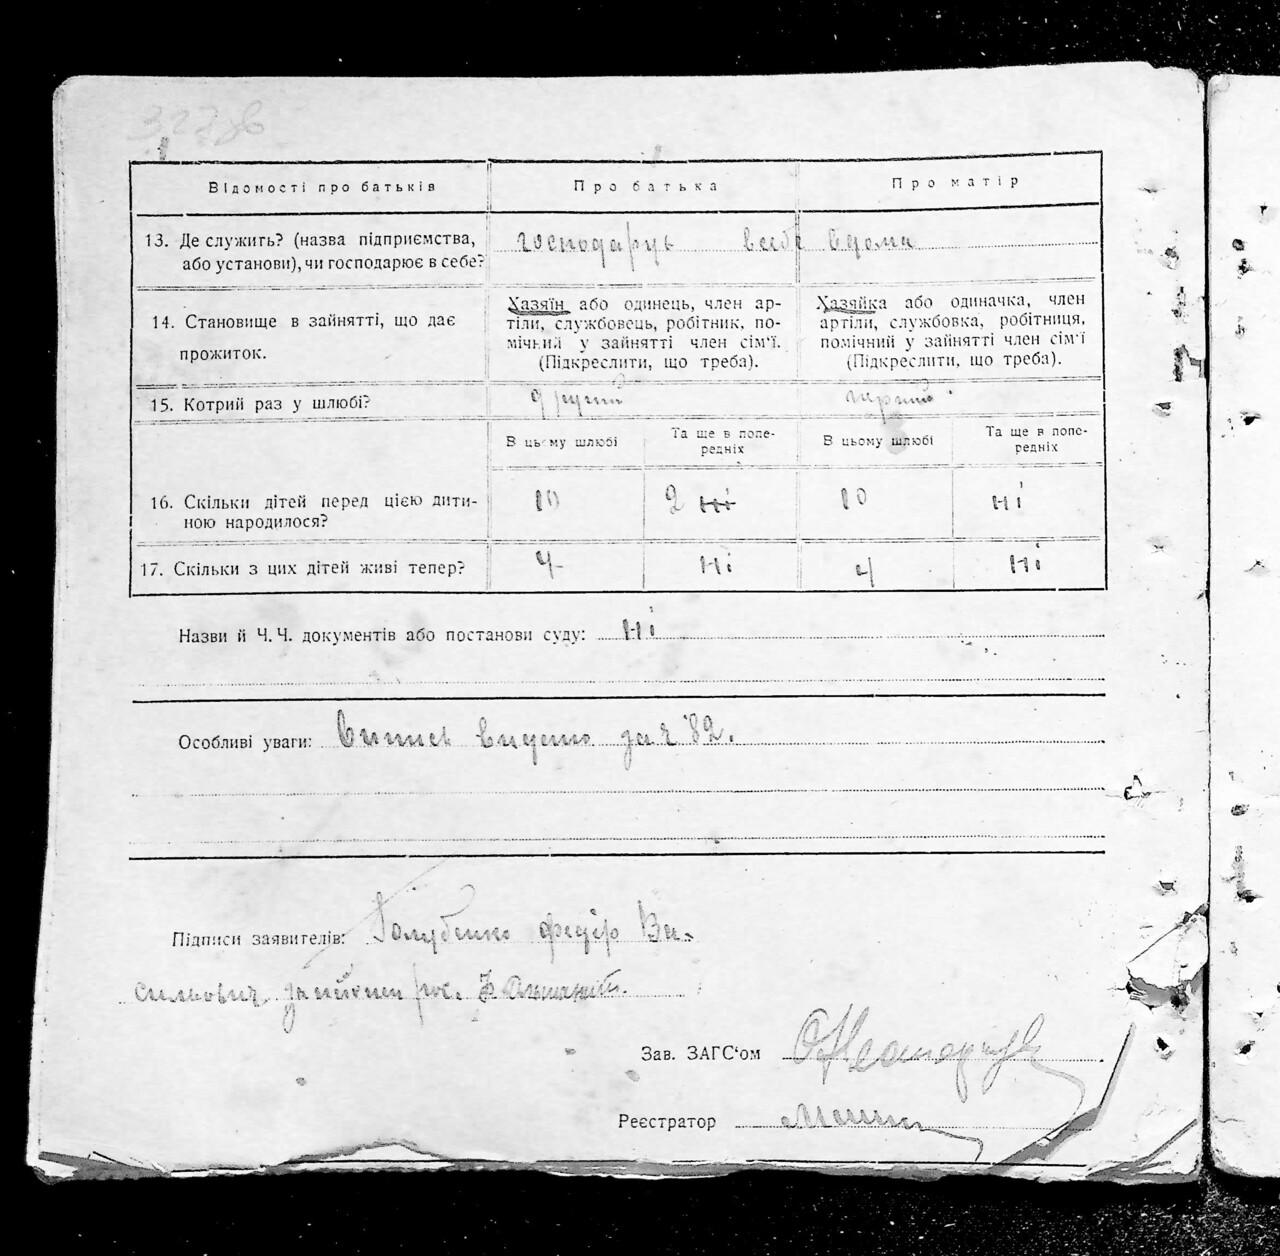 Відомості про батьків
Про батька
Про матір
13. Де служить? (назва підприємства, або установи), чи господарює в себе?
господарує в себе вдома
14. Становище в зайнятті, що дає прожиток.
Хазяїн або одинець, член ар-
тіли, службовець, робітник, по-
мічний у зайнятті член сім'ї.
(Підкреслити, що треба).
Хазяйка або одиначка, член
артіли, службовка, робітниця,
помічний у зайнятті член сім'ї
(Підкреслити, що треба).
15. Котрий раз у шлюбі?
другий
перший
В цьому шлюбі
Та ще в попе-
редніх
В цьому шлюбі
Та ще в попе-
редніх
16. Скільки дітей перед цією дити-
ною народилося?
10
2 ні
10
ні
17. Скільки з цих дітей живі тепер?
4
ні
4
ні
Назви й Ч. Ч. документів або постанови суду: ні
Особливі уваги: Випись видано за № 82.
Підписи заявителів: Голубенко Федір Ва-
сильович
Зав. ЗАГС'ом
Реєстратор